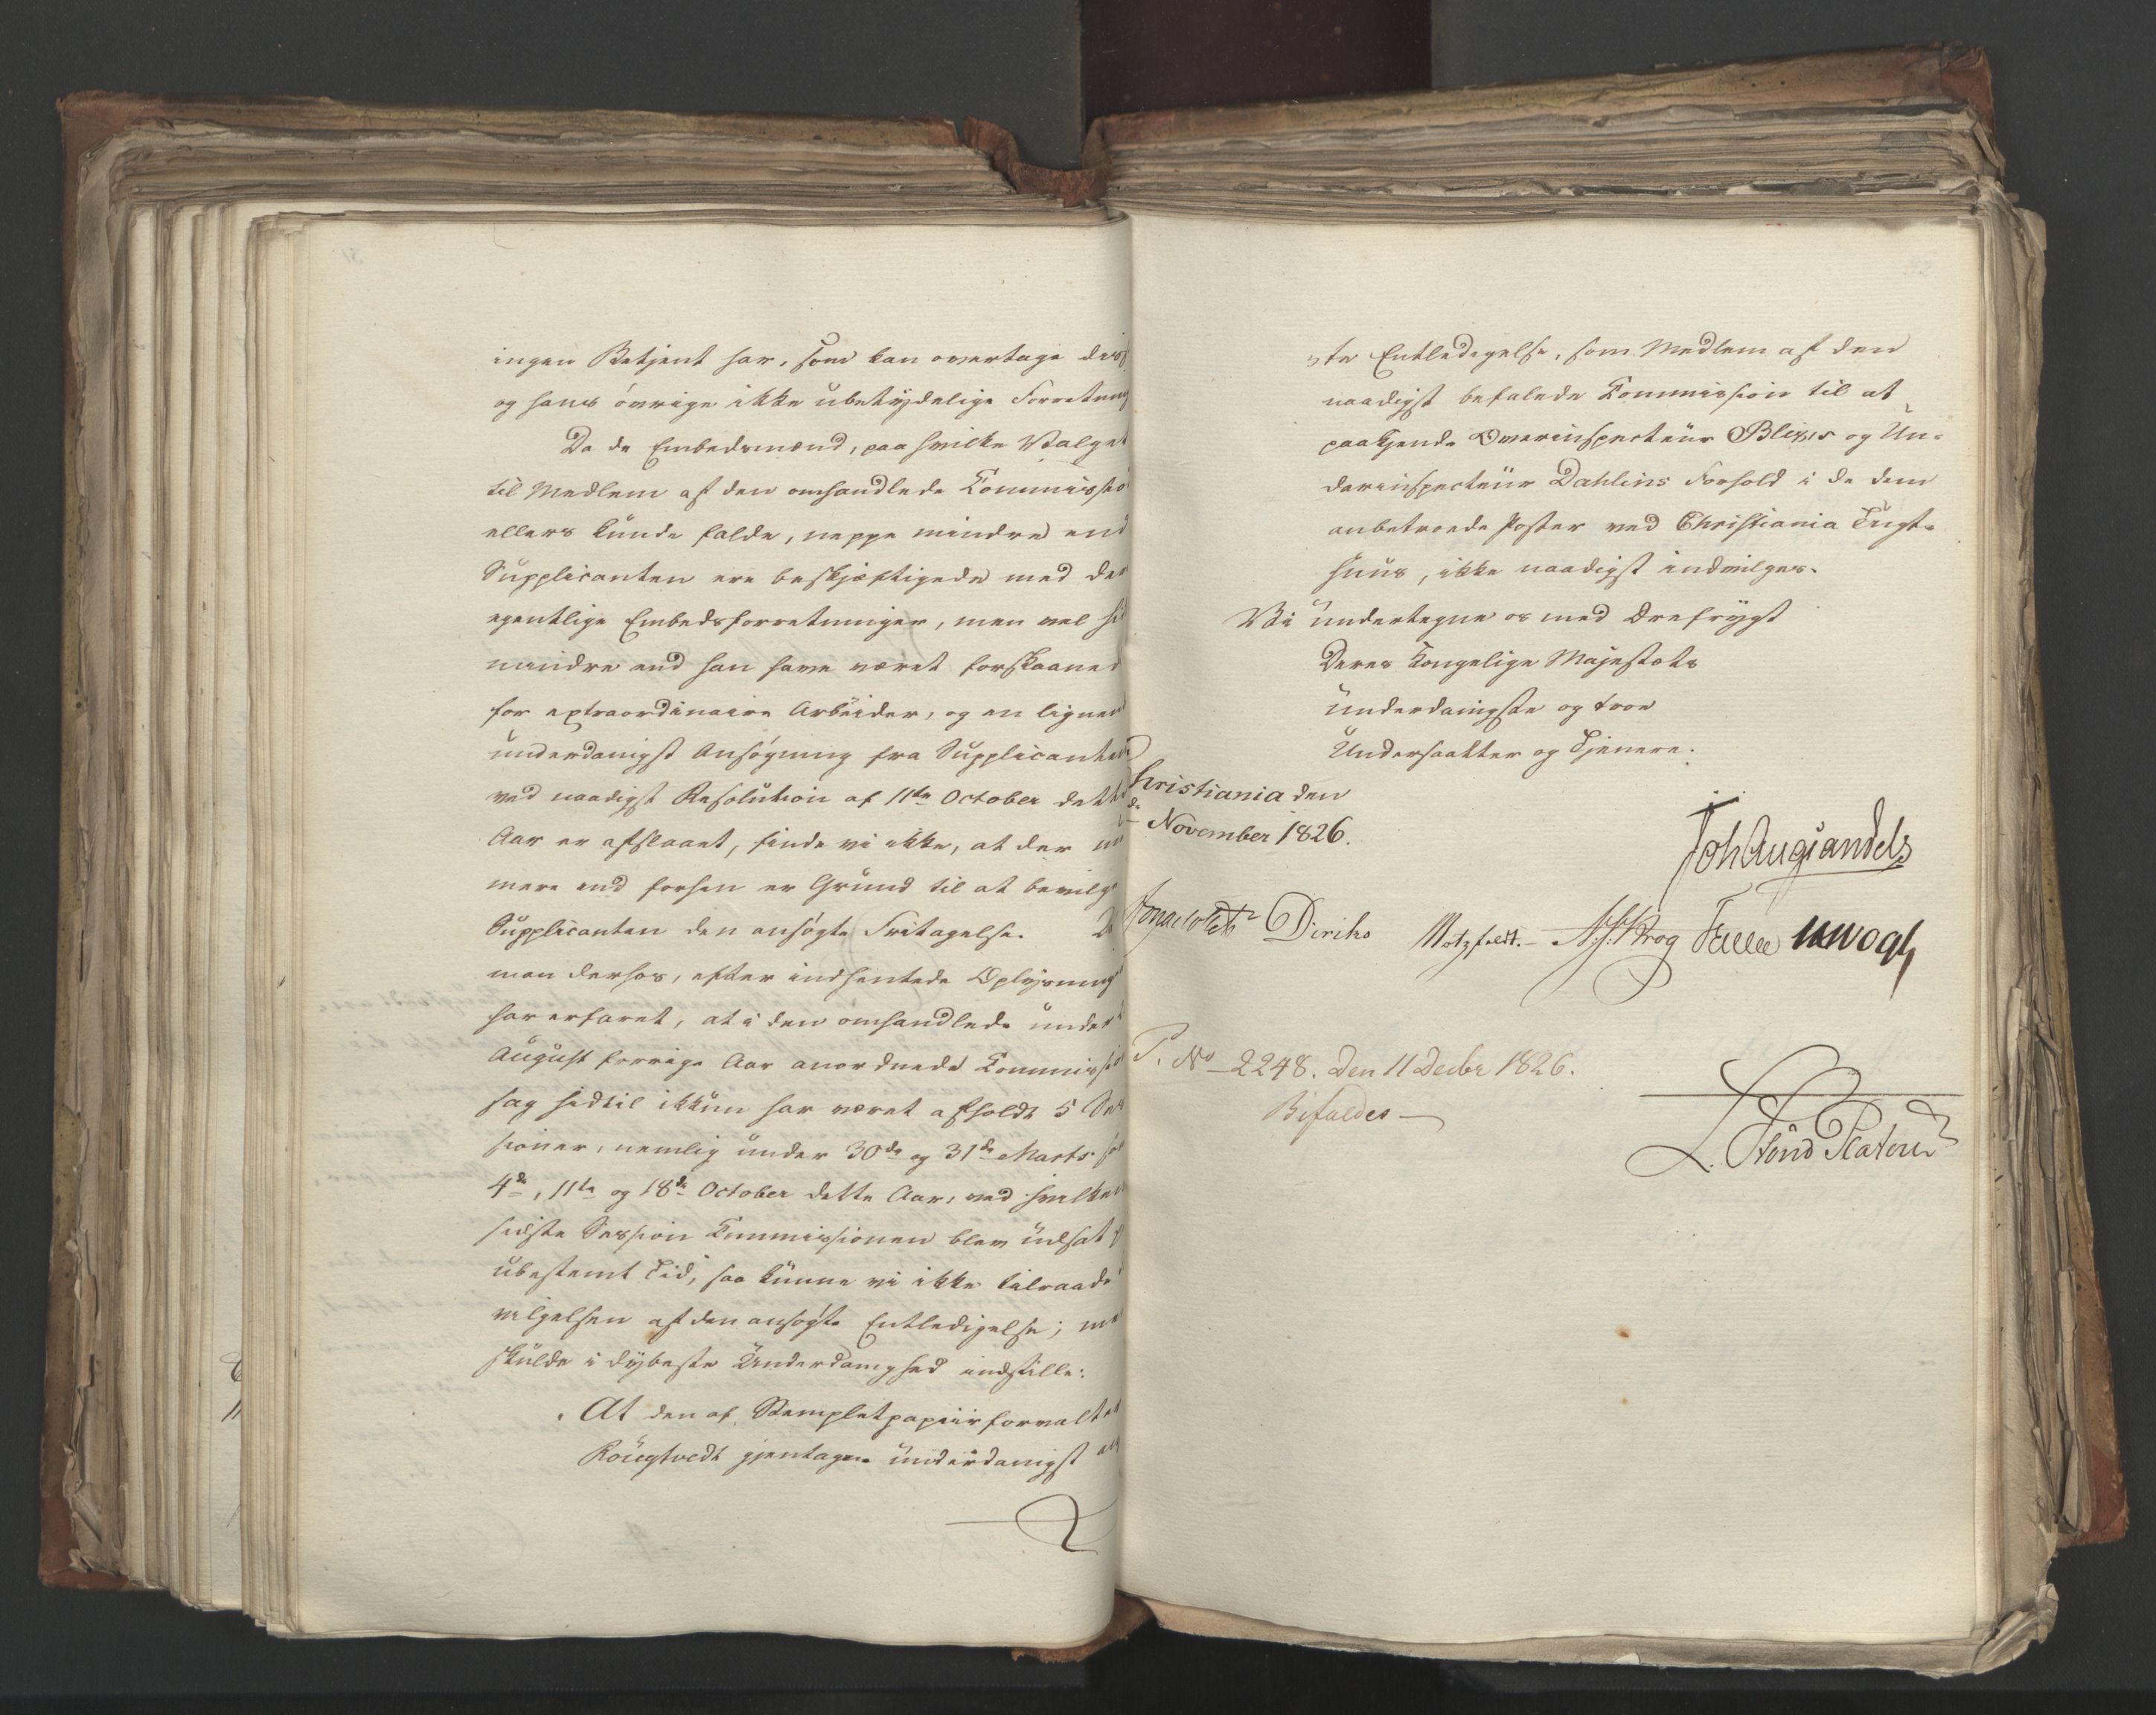 ingen Betjent har, som kan overtage diss
og hans övrige ikke ubetydelige Forretning
Da de Embedsmænd, paa hvilke Valget
til Medlem af den omhandlede Commissio
ellers kunde falde, neppe mindre end
Supplicanten ere beskjæftigede med der
egentlige Embedsforretninger, men vel
mindre end han have været forskaaned
for extraordinaire Arbeider, og en lignend
underdanigst Ansögning fra Supplicanten
ved naadigst Resolution af 11te October dette
Aar er afslaaet, finde vi ikke, at der nu
mere end forhen er Grund til at bevilge
Supplicanten den ansögte Fritagelse. Da
man derhos, efter indhentede Oplysning
har erfaret, at i den omhandlede under
August forrige Aar anordnede Commissi
sag hidtil ikkun har været afholdt 5 Ses
sioner, nemlig under 30de og 31de Marts
4de, 11te og 18de October dette Aar, ved hvilken
sidste Session Commissionen blev udsat
ubestemt Tid, saa kunne vi ikke tilraade
vilgelsen af den ansögte Entledigelse; men
skulde i dybeste Underdanighed indstille:
At den af Stempletpapiirforvalter
Röiegtvedt gjentagne underdanigst an
te Entledigelse, som Medlem af den
naadigst befalede Commission til at
paakjende Overinspecteur Blixes og Un-
derinspecteur Dahlins Forhold i de dem
anbetroede Poster ved Christiania Tugt-
huus, ikke naadigst indvilges.
Vi undertegne os med Ærefrygt
Deres Kongelige Majestæts
underdanigste og troe
Undersaatter og Tjenere.
Christiania den
November 1826.
Joh Aug Sandels
Diriks Motzfeldt. Krog Vogt
P. No 2248. Den 11 Decbr 1826.
Bifaldes